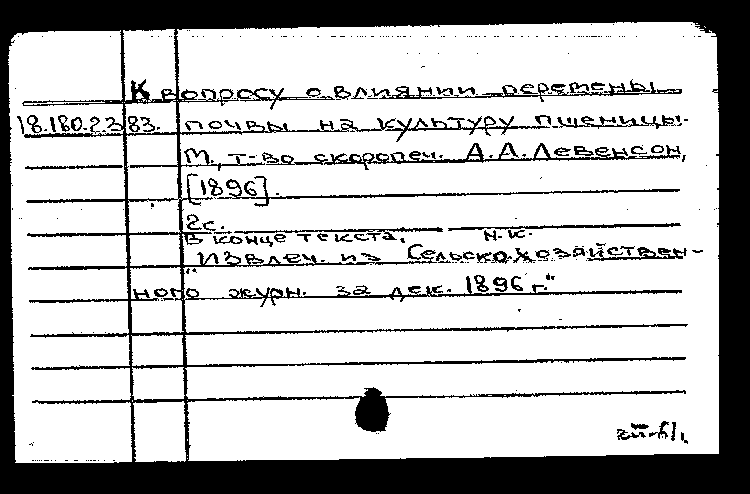 К вопросу о влиянии перемены
18.180.2383. почвы на культуру пшеницы.
М., т-во скоропеч. А.А.Левенсон,
[1896].
2с.
В конце текста: Н.К.
"Извлеч. из Сельскохозяйствен-
ного журн. за дек. 1896 г."